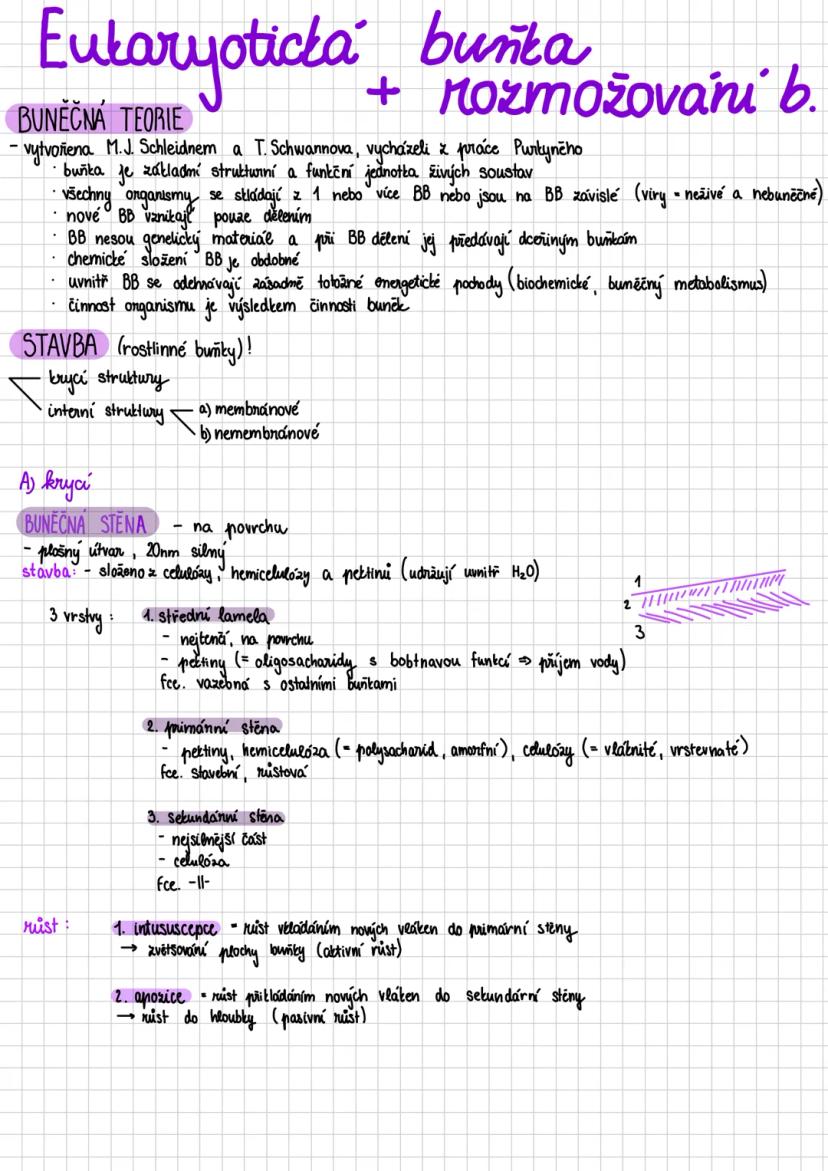 Eukaryotická buňka
+ rozmožování b.
BUNĚČNÁ TEORIE
- vytvořena M.J. Schleidnem a T. Schwannova, vycházeli z práce Purkyného
· buňka je základní strukturní a funkční jednotka živých soustav
· všechny organismy se skládají z 1 nebo více BB nebo jsou na BB závislé (viry = neživé a nebuněčné)
· nové BB vznikají pouze dělením
· BB nesou genetický materiál a při BB dělení jej předávají dceřiným buňkám
· chemické složení BB je obdobné
· uvnitř BB se odehrávají zásadně totožné energetické pochody (biochemické, buněčný metabolismus)
· činnost organismu je výsledkem činnosti buněk
STAVBA (rostlinné buňky)!
krycí struktury
interní struktury a) membránové
b) nemembránové
A) krycí
BUNĚČNÁ STĚNA - na povrchu
- plošný útvar, 20nm silný
stavba: - složeno z celulózy, hemicelulózy a pektinů (udržují uvnitř H₂O)
1
2
3
3 vrstvy: 1. střední lamela
- nejtenčí, na povrchu
- pektiny (= oligosacharidy s bobtnavou funkcí ⇒ příjem vody)
fce. vazebná s ostatními buňkami
2. primární stěna
- pektiny, hemicelulóza (= polysacharid, amorfní), celulózy (= vláknité, vrstevnaté)
fce. stavební, růstová
3. sekundární stěna
- nejsilnější část
- celulóza
fce. -||-
růst: 1. intususcepce = růst vkládáním nových vláken do primární stěny
→ zvětšování plochy buňky (aktivní růst)
2. apozice = růst přikládáním nových vláken do sekundární stěny
→ růst do hloubky (pasivní růst)